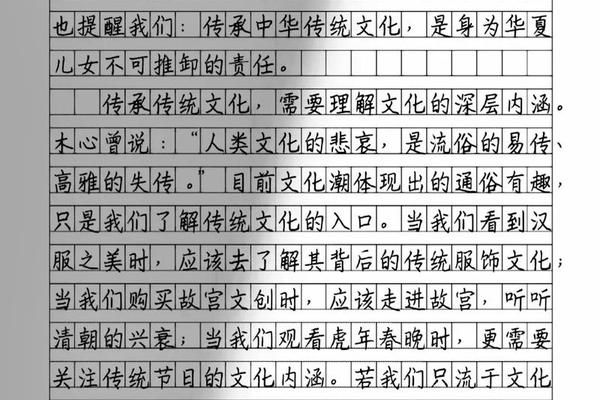 也提醒我们：传承中华传统文化，是身为华夏
儿女不可推卸的责任。
传承传统文化，需要理解文化的深层内涵。
木心曾说：“人类文化的悲哀，是流俗的易传、
高雅的失传。”目前文化潮体现出的通俗有趣，
只是我们了解传统文化的入口。当我们看到汉
服之美时，应该去了解其背后的传统服饰文化；
当我们购买故宫文创时，应该走进故宫，听听
清朝的兴衰；当我们观看虎年春晚时，更需要
关注传统节目的文化内涵。若我们只流于文化